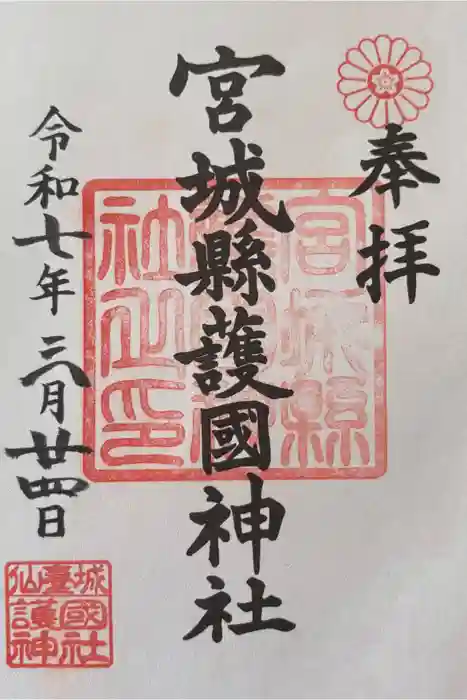 奉拝
宮城縣護國神社
令和七年三月廿四日
宮城縣
護國神
社之印
仙臺城
護國神社